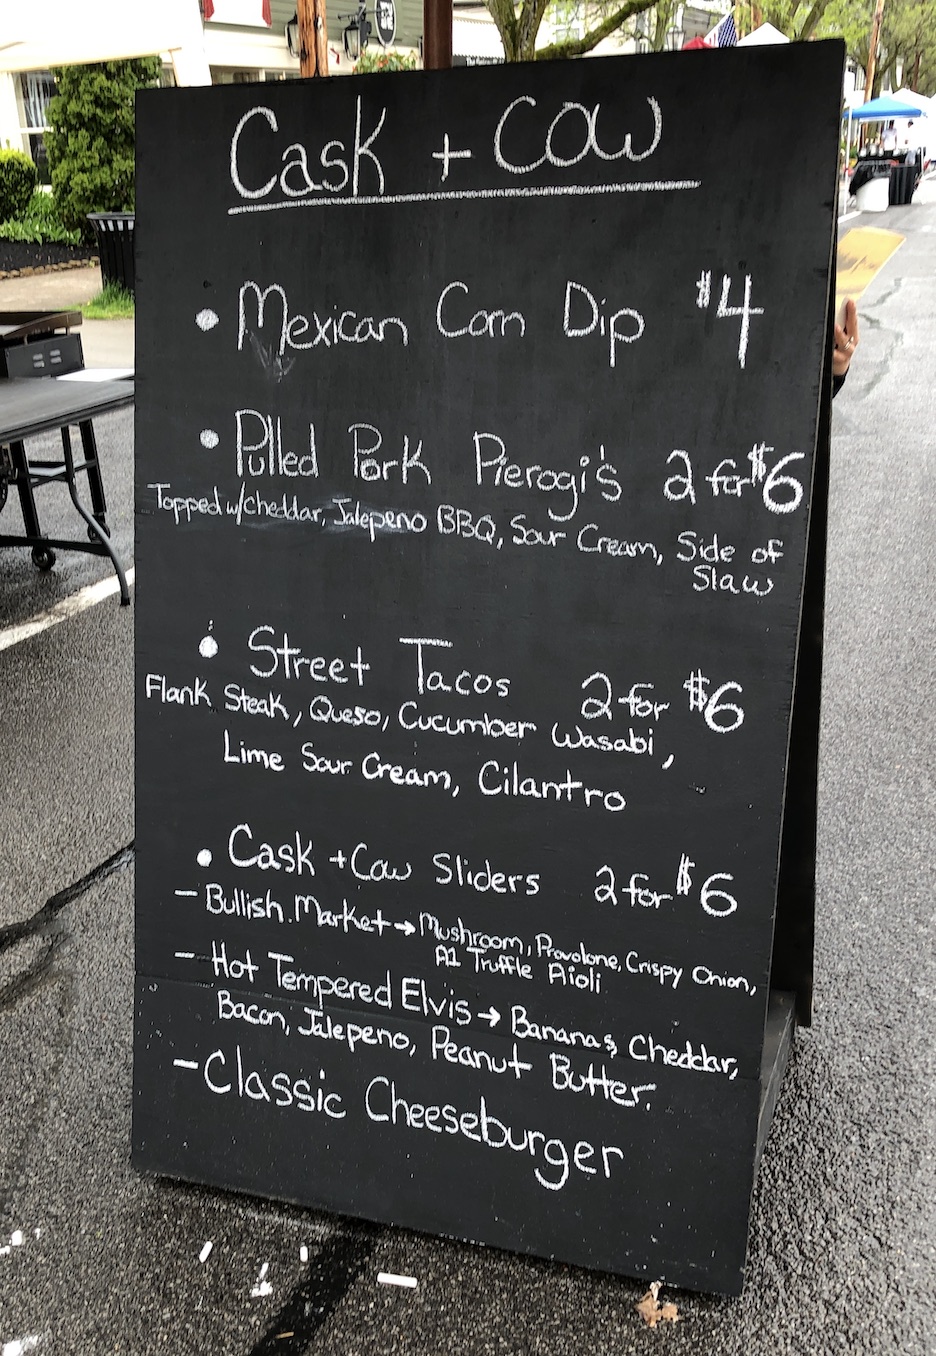 Cask + Cow
• Mexican Corn Dip $4
• Pulled Pork Pierogi's 2 for $6
Topped w/cheddar, Jalepeno BBQ, Sour Cream, Side of
Slaw
• Street Tacos 2 for $6
Flank Steak, Queso, Cucumber Wasabi,
Lime Sour Cream, Cilantro
• Cask + Cow Sliders 2 for $6
- Bullish Market → Mushroom, Provolone, Crispy Onion,
A1 Truffle Aioli
- Hot Tempered Elvis → Bananas, Cheddar,
Bacon, Jalepeno, Peanut Butter.
- Classic Cheeseburger